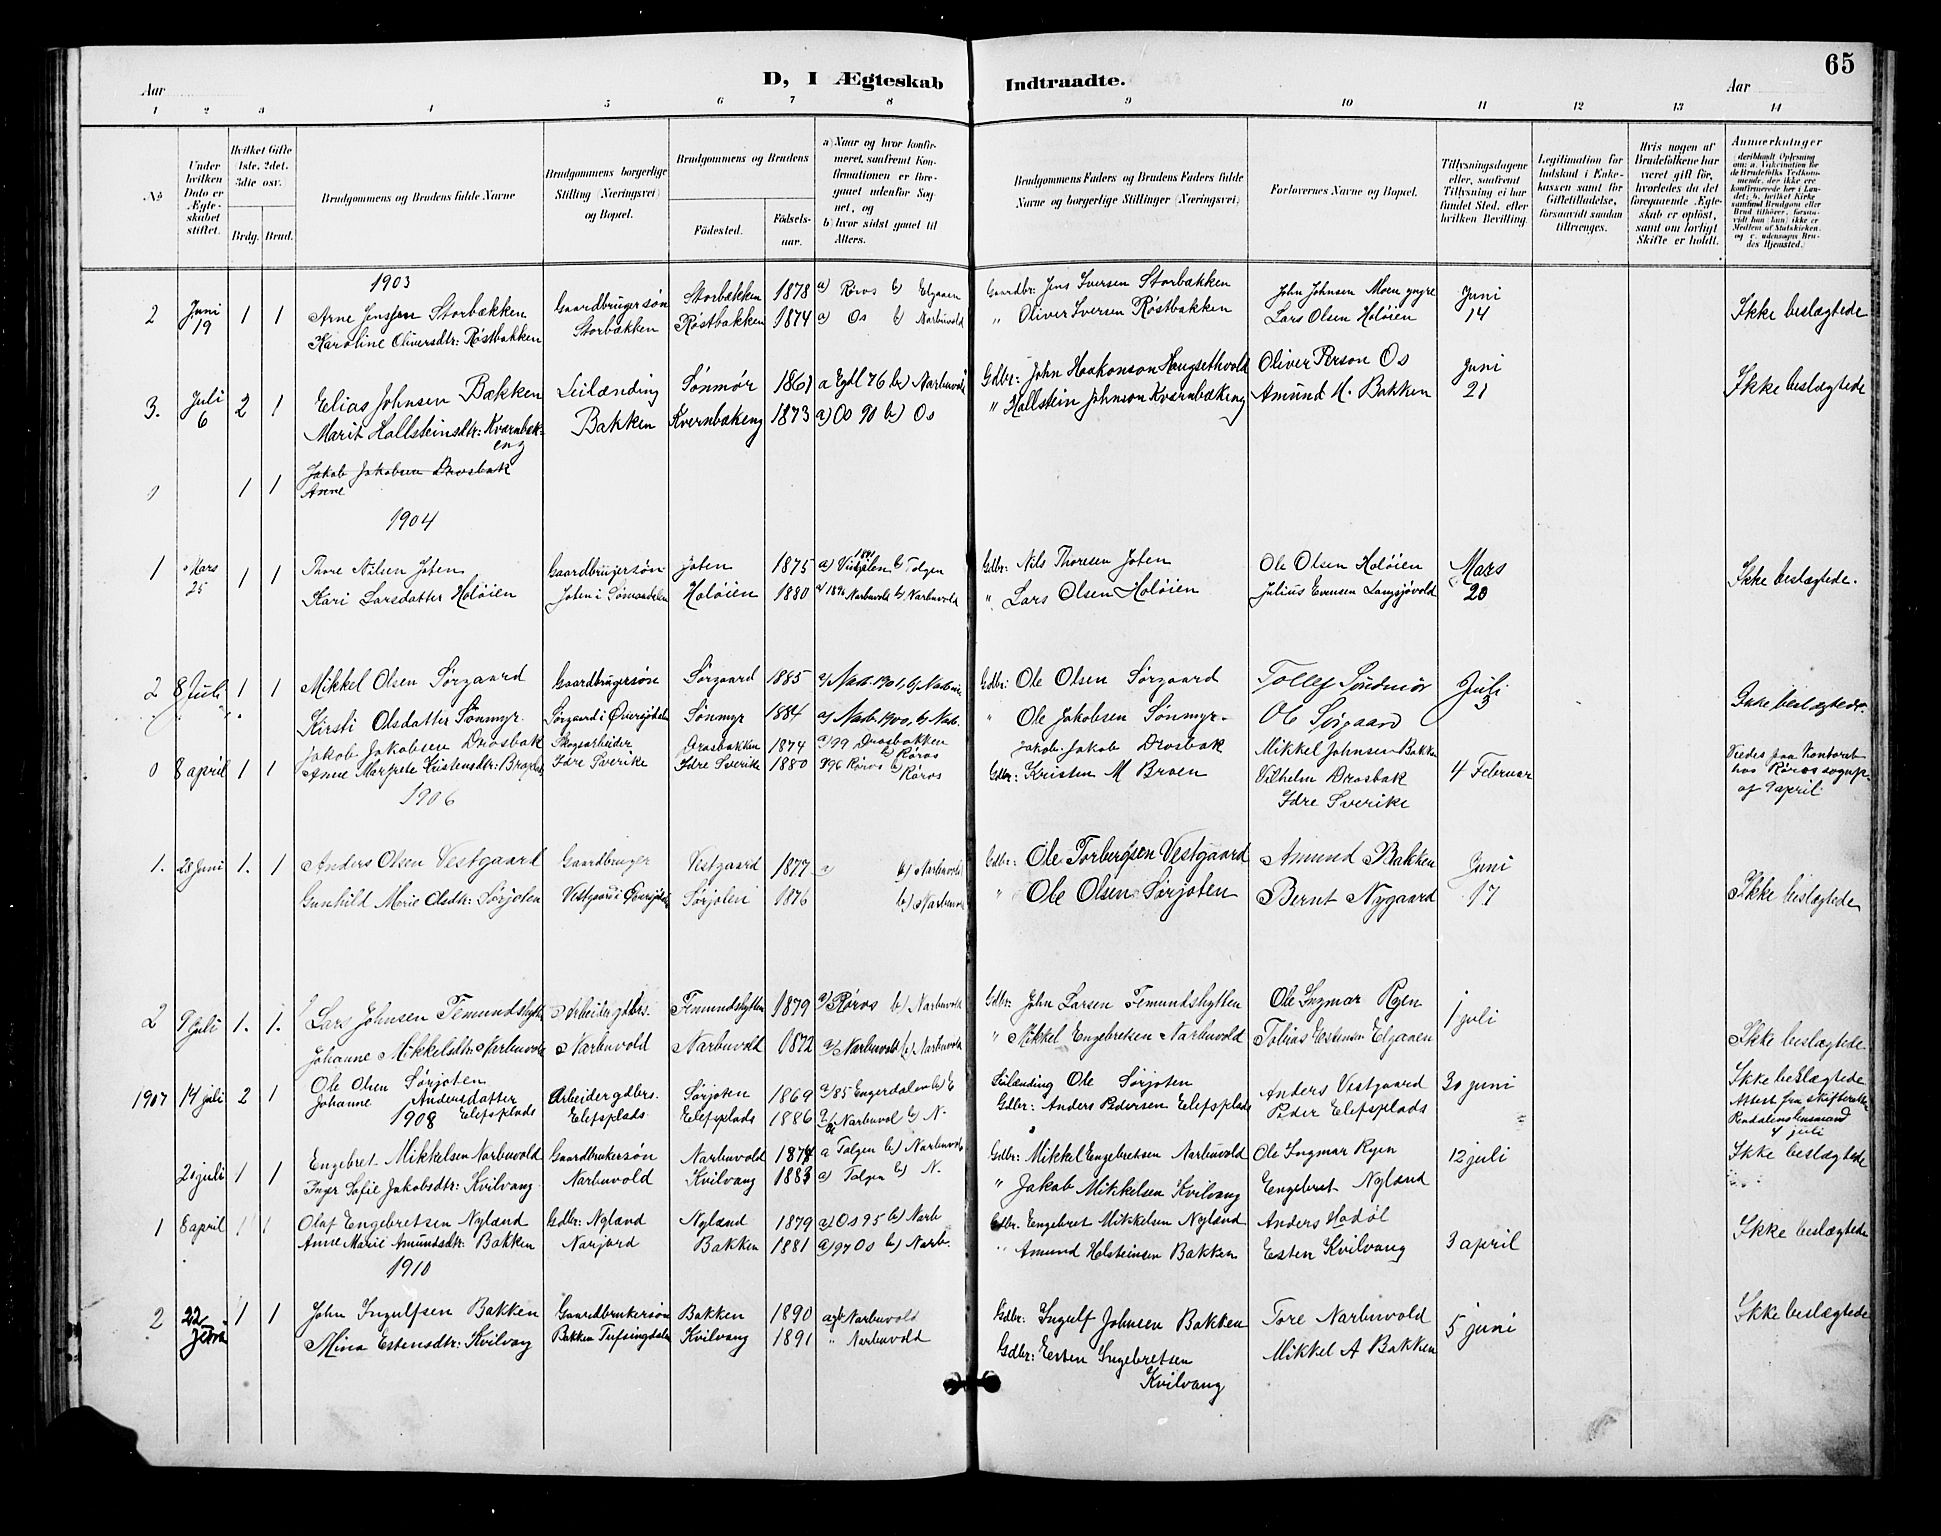 65
D, I Ægteskab Indtraadte.
Aar Aar
1 2 3 4 5 6 7 8 9 10 11 12 13 14
No
Under hvilken Dato er Ægteskabet stiftet.
Hvilket Gifte 1ste, 2det, 3die osv.
Brdg. Brud.
Brudgommens og Brudens fulde Navne
Brudgommens borgerlige Stilling (Næringsvei) og Bopæl.
Brudgommens og Brudens
Fødested.
Fødselsaar.
a) Naar og hvor konfirmeret, saafremt Konfirmationen er foregaaet udenfor Sognet, og
b) hvor sidst gaaet til Alters.
Brudgommens Faders og Brudens Faders fulde Navne og borgerlige Stillinger (Næringsvei)
Forlovernes Navne og Bopæl.
Tillysningsdagene eller, saafremt Tillysning ei har fundet Sted, efter hvilken Bevilling.
Legitimation for Indskud i Enkekassen samt for Giftetilladelse, forsaavidt saadan tiltrænges.
Hvis nogen af Brudefolkene har været gift før, hvorledes da det foregaaende Ægteskab er opløst, samt om lovligt Skifte er holdt.
Anmerkninger
deriblandt Oplysning om: a. Vakcination for de Brudefolks Vedkommende, der ikke ere konfirmerede her i Landet; b. hvilket Kirkesamfund Brudgom eller Brud tilhører, forsaavidt han (hun) ikke er Medlem af Statskirken, og c. udensogns Brudes Hjemsted.
1903
2 Juni 19 1 1 Arne Jenssen Storbækken Gaardbrugersøn Storbækken 1878 a) Røros b) Elgaaen Gaardbr: Jens Iversen Storbækken John Johnsen Moen yngre Juni 14 Ikke beslægtede
Karoline Oliversdtr: Røstbakken Storbækken Røstbakken 1874 a) Os b) Narbuvold " Oliver Iversen Røstbakken Lars Olsen Holøien
3. Juli 6 2 1 Elias Johnsen Bakken Leilænding Sønmør 1861 a Egdl 76 b) Narbuvold Gdbr: John Haakonson Haugsethvold Oliver Person Os Juni 21 Ikke beslægtede
Marit Hallsteinsdtr: Kværnbækeng Bakken Kvernbækeng 1873 a) Os 90 b) Os " Hallstein Johnson Kværnbækeng Amund M. Bakken
1 1 Jakob Jakobsen Drosbak
Anne
1904
1 Mars 25 1 1 Thore Nilsen Joten Gaardbrugersøn Joten 1875 a) 1891 Vingelen b) Tolgen Gdbr: Nils Thoresen Joten Ole Olsen Holøien Mars 20 Ikke beslægtede.
Kari Larsdatter Holøien Joten i Sømaadalen Holøien 1880 a) 1896 Narbuvold b) Narbuvold " Lars Olsen Holøien Julius Evensen Langsjøvold
2 8 Juli 1 1 Mikkel Olsen Sørgaard Gaardbrugersøn Sørgaard 1885 a) Narb. 1901, b) Narb Gdbr: Ole Olsen Sørgaard Tollef Søndmør Juli 3 Ikke beslægtede.
Kirsti Olsdatter Sønmyr. Sørgaard i Øversjødalen Sønmyr 1884 a) Narb. 1900, b) Narb. " Ole Jakobsen Sønmyr. Ole Sørgaard
0 8 april 1 1 Jakob Jakobsen Drosbak Skogsarbeider Drosbakken 1874 a) 99 Drosbakken b) Røros Jakob Jakob Drosbak Mikkel Johnsen Bakken 4 Februar Viedes paa Kontoret hos Røros sognp. af 9 april
Anne Margrete Kristensdtr: Idre Sverike Idre Sverike 1880 a) 96 Røros b) Røros Gdbr: Kristen M Broen Vilhelm Drosbak
Idre Sverike
1906
1. 28 Juni 1. 1 Anders Olsen Vestgaard Gaardbruger Vestgaard 1877 a) b) Narbuvold Gdbr: Ole Torbergsen Vestgaard Amund Bakken Juni 17 Ikke beslægtede
Gunhild Marie Olsdtr: Sørjoten Vestgaard i Øversjødalen Sørjoten 1876 b) Narbuvold " Ole Olsen Sørjoten Bernt Nygaard
2 9 Juli 1. 1. Lars Johnsen Femundshytten Arbeider gdbrs. Femundshytten 1879 a) Røros b) Narbuvold Gdbr: John Larsen Femundshytten Ole Ingmar Ryen 1 juli Ikke beslægtede
Johanne Mikkelsdtr: Narbuvold Narbuvold Narbuvold 1872 a) Narbuvold b) Narbuvold " Mikkel Engebretsen Narbuvold Tobias Estensen Elgaaen
1907 14 juli 2 1 Ole Olsen Sørjoten Arbeider gdbrs. Sørjoten 1869 a) 85 Engerdalen b) E Leilænding Ole Sørjoten Anders Vestgaard 30 juni Ikke beslægtede
Johanne Andersdatter Elefsplads Elefsplads Elefsplads 1886 Narbuvold b) N. Gdbr: Anders Pedersen Elefsplads Peder Elefsplads Attest fra Skifteretten Rendalens lensmand 4 juli
1908
20 juli 1 1 Engebret Mikkelsen Narbuvold Gaardbrukersøn Narbuvold 1874 a Tolgen b) Narbuvold Gdbr: Mikkel Engebretsen Narbuvold Ole Ingmar Ryen 12 juli Ikke beslægtede
Inger Sofie Jakobsdtr: Kvilvang Narbuvold Kvilvang 1883 a) Tolgen b) N. " Jakob Mikkelsen Kvilvang Engebret Nyland
1 8 april 1 1 Olaf Engebretsen Nyland Gdbr: Nyland Nyland 1879 a) Os 95 b) Narb Gdbr. Engebret Mikkelsen Nyland Anders Hodøl 3 april Ikke beslægtede
Anne Marie Amundsdtr: Bakken Narjord Bakken 1881 a) 97 Os b) Narb. " Amund Holsteinsen Bakken Esten Kvilvang
1910
2 22 1 1 John Ingulfsen Bakken Gaardbrukersøn Bakken 1890 Narbuvold Gdbr: Ingulf Johnsen Bakken Tore Narbuvold 5 juni Ikke beslægtede
Mina Estensdtr: Kvilvang Bakken Tufsingdalen Kvilvang 1891 " Narbuvold Gdbr: Esten Ingebretsen Kvilvang Mikkel A Bakken